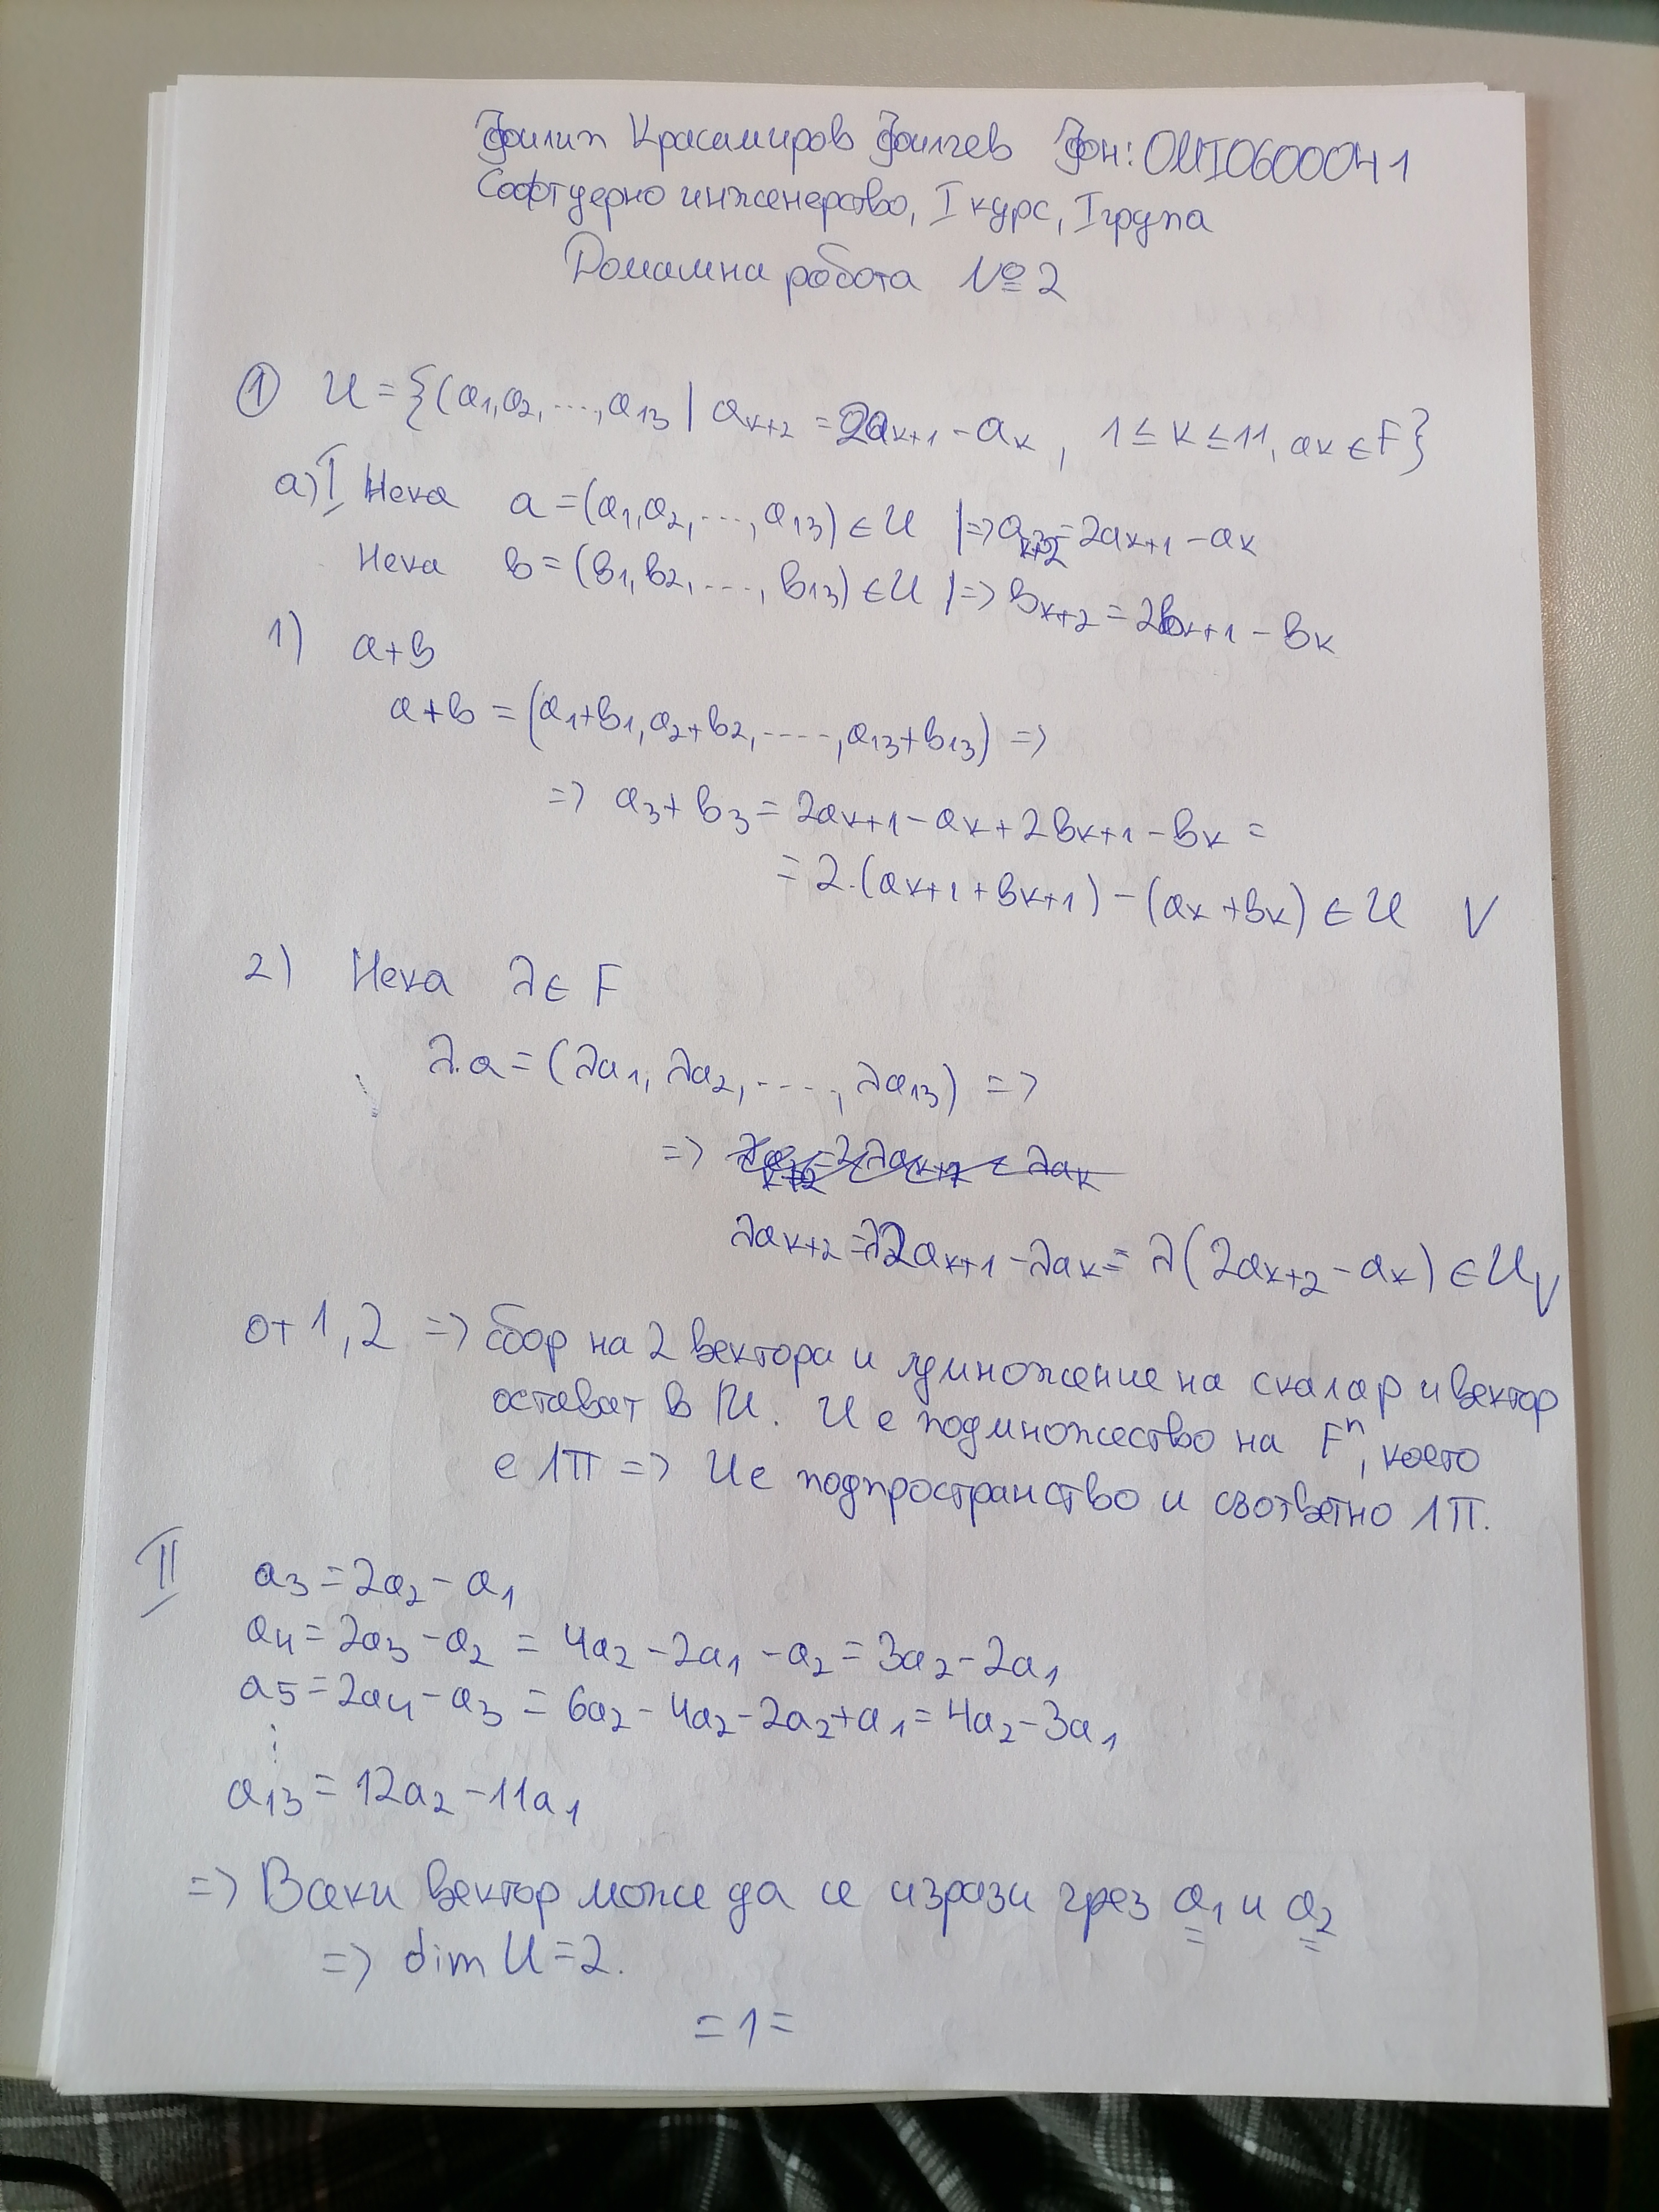 Филип Красимиров Филчев Фн: 0MI0600041
Софтуерно инженерство, I курс, I група
Домашна работа № 2
① U = {(a₁, a₂, ..., a₁₃ | aₖ₊₂ = 2aₖ₊₁ - aₖ, 1 ≤ k ≤ 11, aₖ ∈ F}
а) I Нека a = (a₁, a₂, ..., a₁₃) ∈ U |=> aₖ₊₂ = 2aₖ₊₁ - aₖ
Нека в = (в₁, в₂, ..., в₁₃) ∈ U |=> вₖ₊₂ = 2вₖ₊₁ - вₖ
1) a+в
a+в = (a₁+в₁, a₂+в₂, ...., a₁₃+в₁₃) =>
=> a₃ + в₃ = 2aₖ₊₁ - aₖ + 2вₖ₊₁ - вₖ =
= 2.(aₖ₊₁ + вₖ₊₁) - (aₖ + вₖ) ∈ U V
2) Нека λ ∈ F
λ.a = (λa₁, λa₂, ...., λa₁₃) =>
=>
λaₖ₊₂ = λ2aₖ₊₁ - λaₖ = λ(2aₖ₊₂ - aₖ) ∈ U V
от 1, 2 => сбор на 2 вектора и умножение на скалар и вектор
остават в U. U е подмножество на Fⁿ, което
е ЛП => U е подпространство и съответно ЛП.
II a₃ = 2a₂ - a₁
a₄ = 2a₃ - a₂ = 4a₂ - 2a₁ - a₂ = 3a₂ - 2a₁
a₅ = 2a₄ - a₃ = 6a₂ - 4a₂ - 2a₂ + a₁ = 4a₂ - 3a₁
⋮
a₁₃ = 12a₂ - 11a₁
=> Всеки вектор може да се изрази чрез a₁ и a₂
=> dim U = 2.
= 1 =